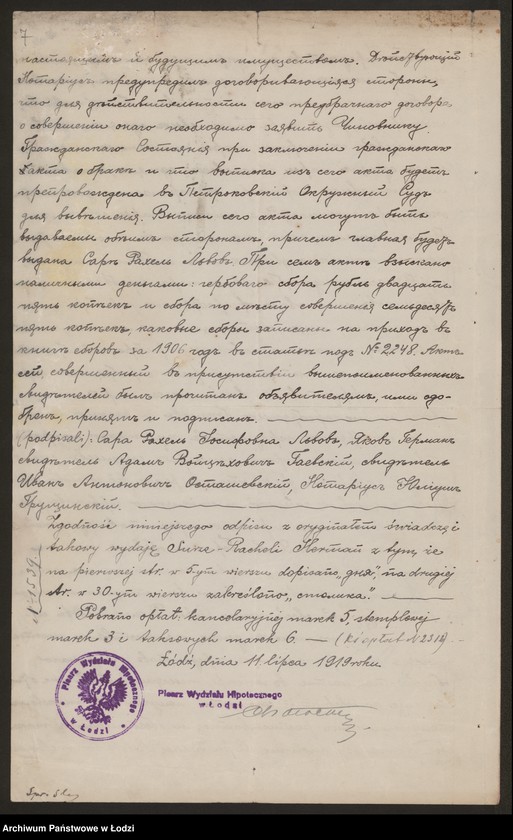 7
настоящимъ и будущимъ имуществомъ. Дѣйствующій
Нотаріусъ предупредилъ договаривающіяся стороны,
что для дѣйствительности сего предбрачнаго договора
о совершеніи онаго необходимо заявить Чиновнику
Гражданскаго Состоянія при заключеніи гражданскаго
акта о бракѣ и что выписка изъ сего акта будетъ
препровождена въ Петроковскій Окружный Судъ
для вывѣшенія. Выписи сего акта могутъ быть
выдаваемы обѣимъ сторонамъ, причемъ главная будетъ
выдана Сарѣ Рахель Львовъ. При семъ актѣ взыскано
наличными деньгами: гербоваго сбора рубль двадцать
пять копѣекъ и сбора по мѣсту совершенія семьдесятъ
пять копѣекъ, каковые сборы записаны на приходъ въ
книгѣ сборовъ за 1906 годъ въ статьѣ подъ № 2248. Актъ
сей совершенный въ присутствіи вышепоименованныхъ
свидѣтелей былъ прочитанъ объявителямъ, ими одо-
бренъ, принятъ и подписанъ.
(podpisali): Сара Рахель Іосифовна Львовъ, Яковъ Германъ
свидѣтель Адамъ Войцѣховичъ Гаевскій, свидѣтель
Иванъ Антоновичъ Осташевскій, Нотаріусъ Юліушъ
Грущинскій.
Zgodność niniejszego odpisu z oryginałem świadczę i
takowy wydaję Surze-Racheli Herman z tym, że
na pierwszej str. w 5-ym wierszu dopisano „dnia”, na drugiej
str. w 30-ym wierszu zakreślono „столика”.
Pobrano opłat: kancelaryjnej marek 5, stemplowej
marek 3 i taksowych marek 6. — (Kc opłat N 2312)
Łódź, dnia 11 lipca 1919 roku
N 1539
Pisarz Wydziału Hipotecznego
w Łodzi
Pisarz Wydziału Hipotecznego
w Łodzi
Archiwum Państwowe w Łodzi